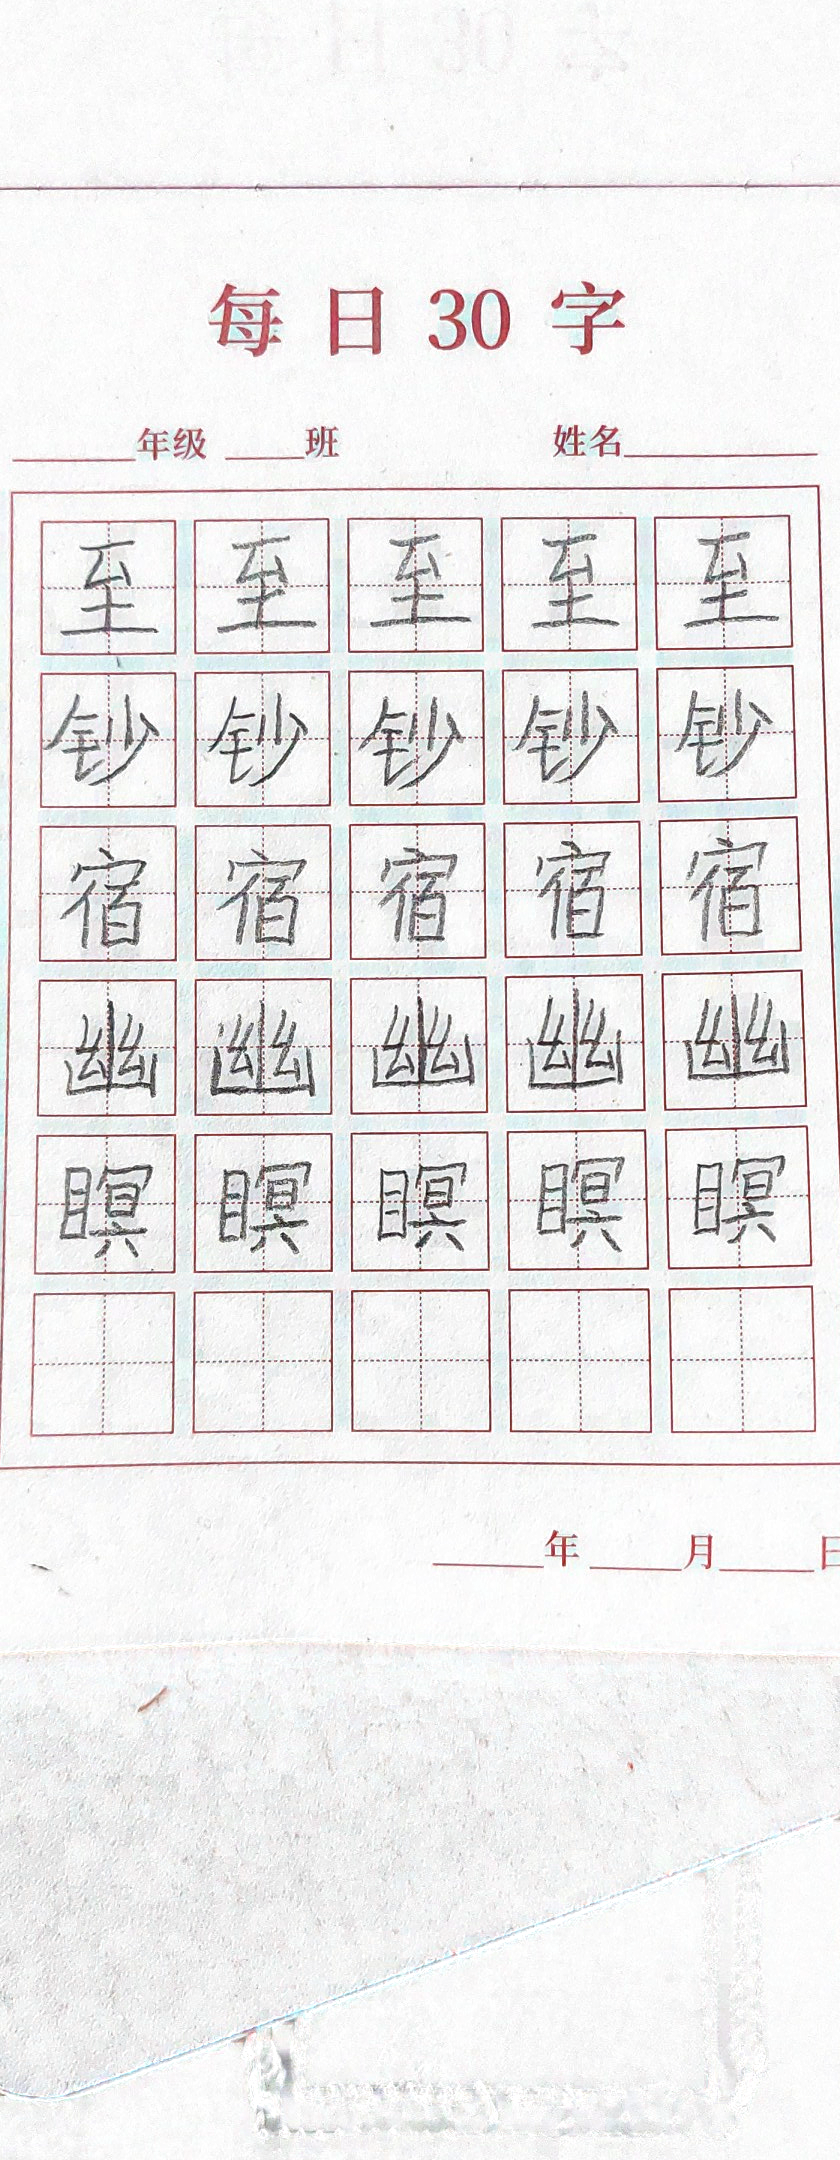 每日30字
年级 班 姓名
至 至 至 至 至
钞 钞 钞 钞 钞
宿 宿 宿 宿 宿
幽 幽 幽 幽 幽
瞑 瞑 瞑 瞑 瞑
年 月 日